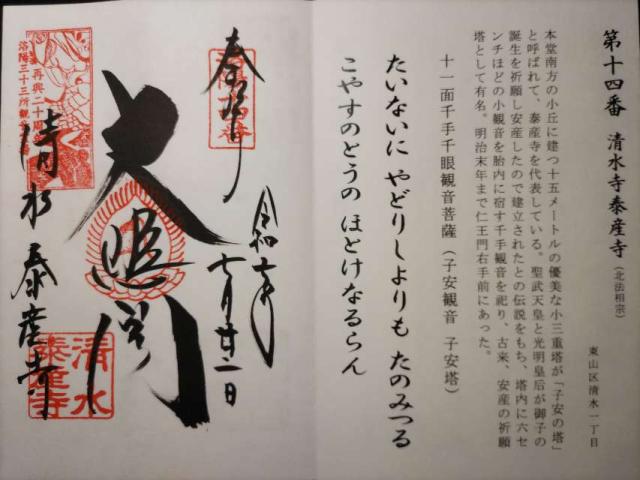 第十四番 清水寺泰産寺(北法相宗)
東山区清水一丁目
本堂南方の小丘に建つ十五メートルの優美な小三重塔が「子安の塔」
と呼ばれて、泰産寺を代表している。聖武天皇と光明皇后が御子の
誕生を祈願し安産したので建立されたとの伝説をもち、塔内に六セ
ンチほどの小観音を胎内に宿す千手観音を祀り、古来、安産の祈願
塔として有名。明治末年まで仁王門右手前にあった。
十一面千手千眼観音菩薩(子安観音 子安塔)
たいないに やどりしよりも たのみつる
こやすのとうの ほとけなるらん
奉拝
令和七年
七月廿二日
大悲閣
清水泰産寺
再興二十周年
洛陽三十三所観音
清水
泰産寺